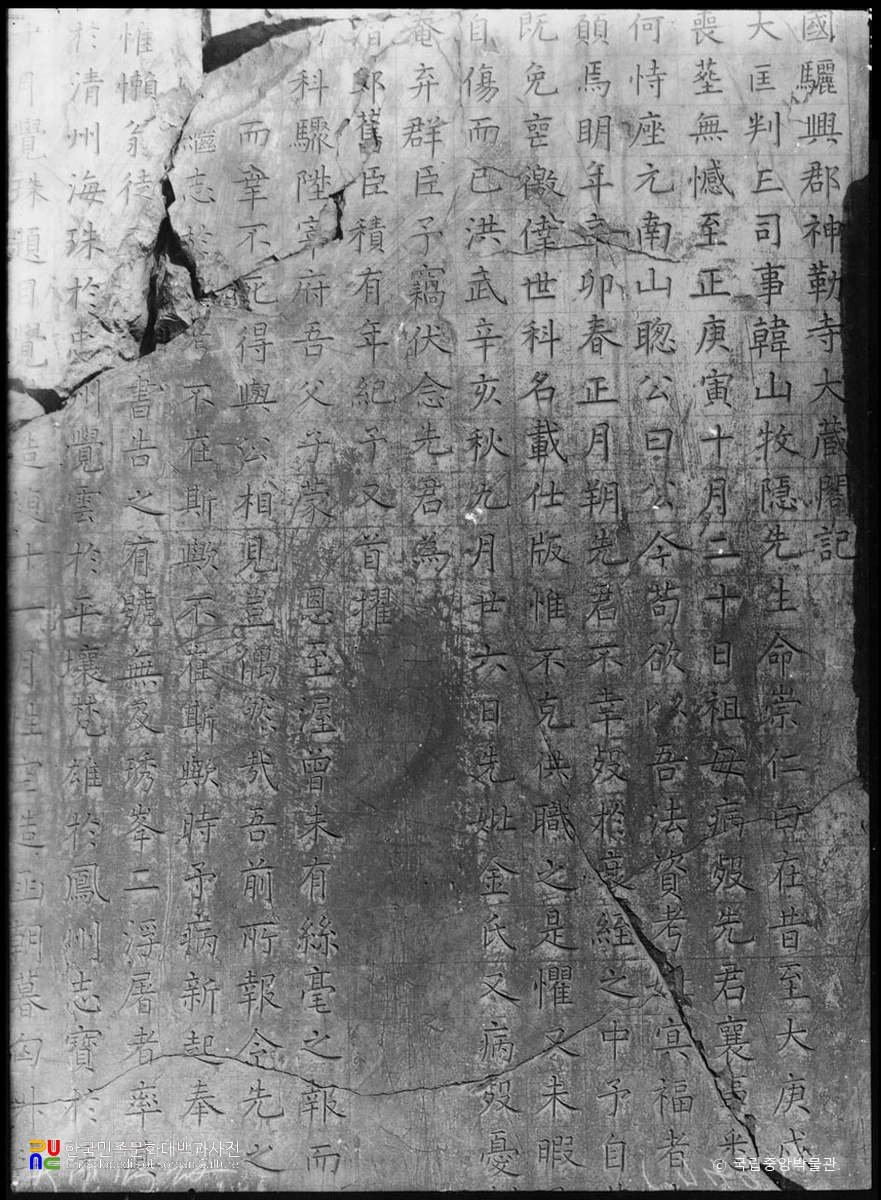 國驪興郡神勒寺大藏閣記
大匡判三司事韓山牧隱先生命崇仁曰在昔至大庚戌
喪塟無憾至正庚寅十月二十日祖母病歿先君襄事悉
何恃座元南山聰公曰公今苟欲以吾法資考妣冥福者
願焉明年辛卯春正月朔先君不幸歿於衰絰之中予自
既免喪徼倖世科名載仕版惟不克供職之是懼又未暇
自傷而已洪武辛亥秋九月廿六日先妣金氏又病歿憂
奄弃群臣予竊伏念先君為
潛邸舊臣積有年紀予又首擢
科驟陞宰府吾父子蒙 恩至渥曾未有絲毫之報而
而幸不死得與公相見豈偶然哉吾前所報今先之
繼志於 者不在斯歟不在斯歟時予病新起奉
惟懶翁徒 書告之有號無及琇峯二浮屠者率
於清州海珠於忠州覺雲於平壤梵雄於鳳州志寶於
十月覺珠題目覺 造 十一月性空造函朝暮
한국민족문화대백과사전
Encyclopedia of Korean Culture
© 국립중앙박물관